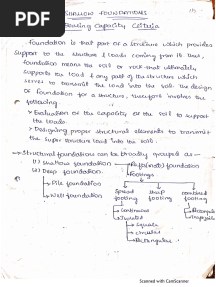 PDF
SHALLOW FOUNDATIONS
Bearing Capacity Criteria
Foundation is that part of a structure which provides
support to the structure & loads coming from it. Thus,
foundation means the soil or rock that ultimately
supports the load & any part of the structure which
serves to transmit the load into the soil. The design
of foundation for a structure, therefore involves the
following
Evaluation of the capacity of the soil to support
the loads.
Designing proper structural elements to transmit
the super structure load into the soil.
Structural foundations can be broadly grouped as —
(1) Shallow foundation → Raft (mat) foundation
(2) Deep foundation → Footings
Pile foundation Spread footing Strap footing Combined footing
Well foundation → Continuous → Rectangular
→ Square
→ Circular
→ Rectangular
Scanned with CamScanner